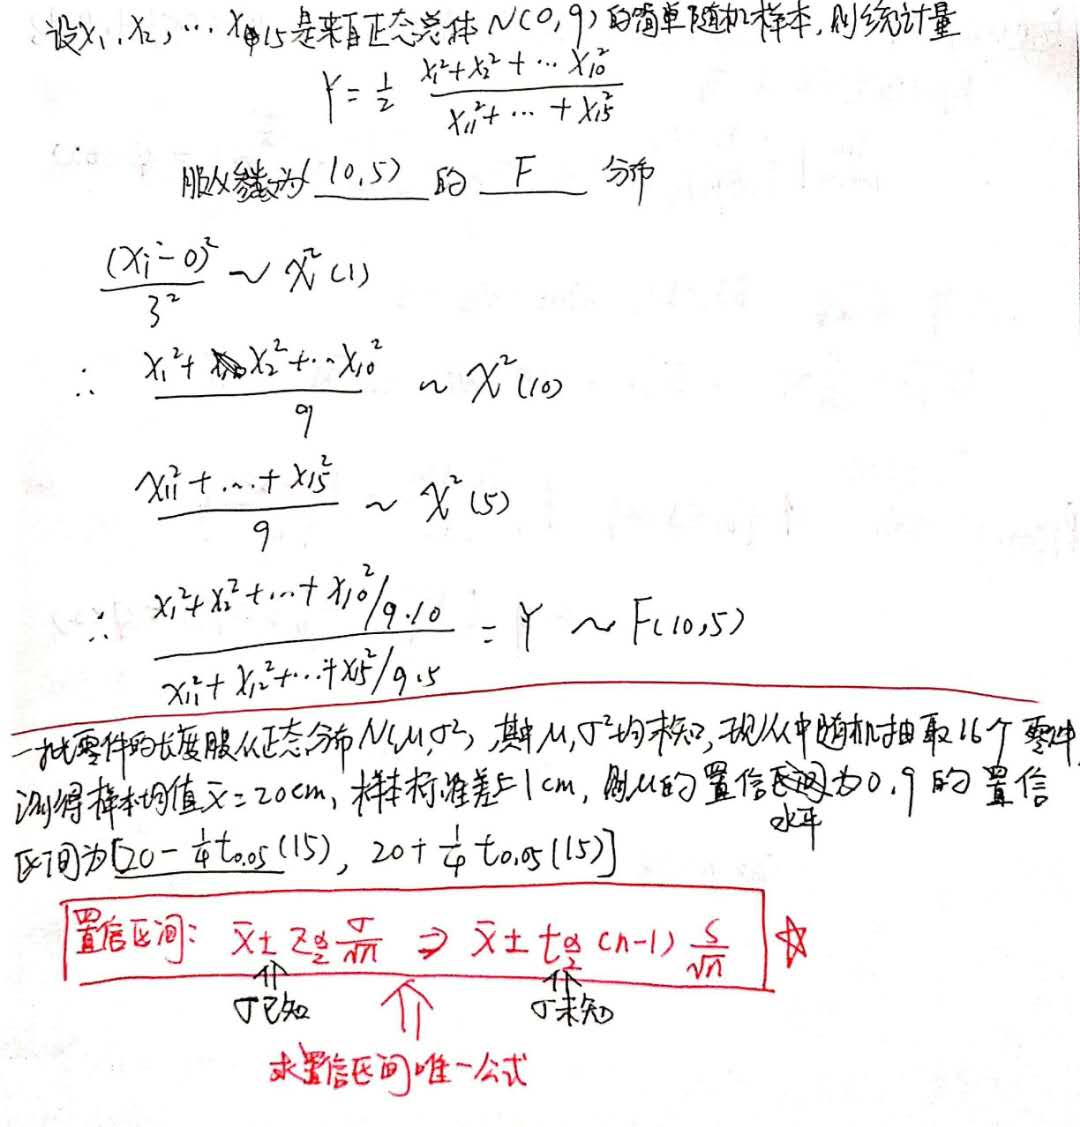 设X₁,X₂,…X₁₅是来自正态总体N(0,9)的简单随机样本,则统计量
Y = 1/2 (X₁²+X₂²+…X₁₀²)/(X₁₁²+…+X₁₅²)
服从参数为(10,5)的 F 分布
(Xᵢ-0)²/3² ~ χ²(1)
∴ (X₁²+X₂²+…X₁₀²)/9 ~ χ²(10)
(X₁₁²+…+X₁₅²)/9 ~ χ²(5)
∴ (X₁²+X₂²+…+X₁₀²/9·10)/(X₁₁²+X₁₂²+…+X₁₅²/9·5) = Y ~ F(10,5)
一批零件的长度服从正态分布N(μ,σ²),其中μ,σ²均未知,现从中随机抽取16个零件,
测得样本均值x̄=20cm,样本标准差=1cm,则μ的置信水平为0.9的置信
区间为[20-1/4 t₀.₀₅(15), 20+1/4 t₀.₀₅(15)]
置信区间: x̄±Z_{α/2} σ/√n ⇒ x̄±t_{α/2}(n-1) S/√n ☆
σ已知 σ未知
求置信区间唯一公式